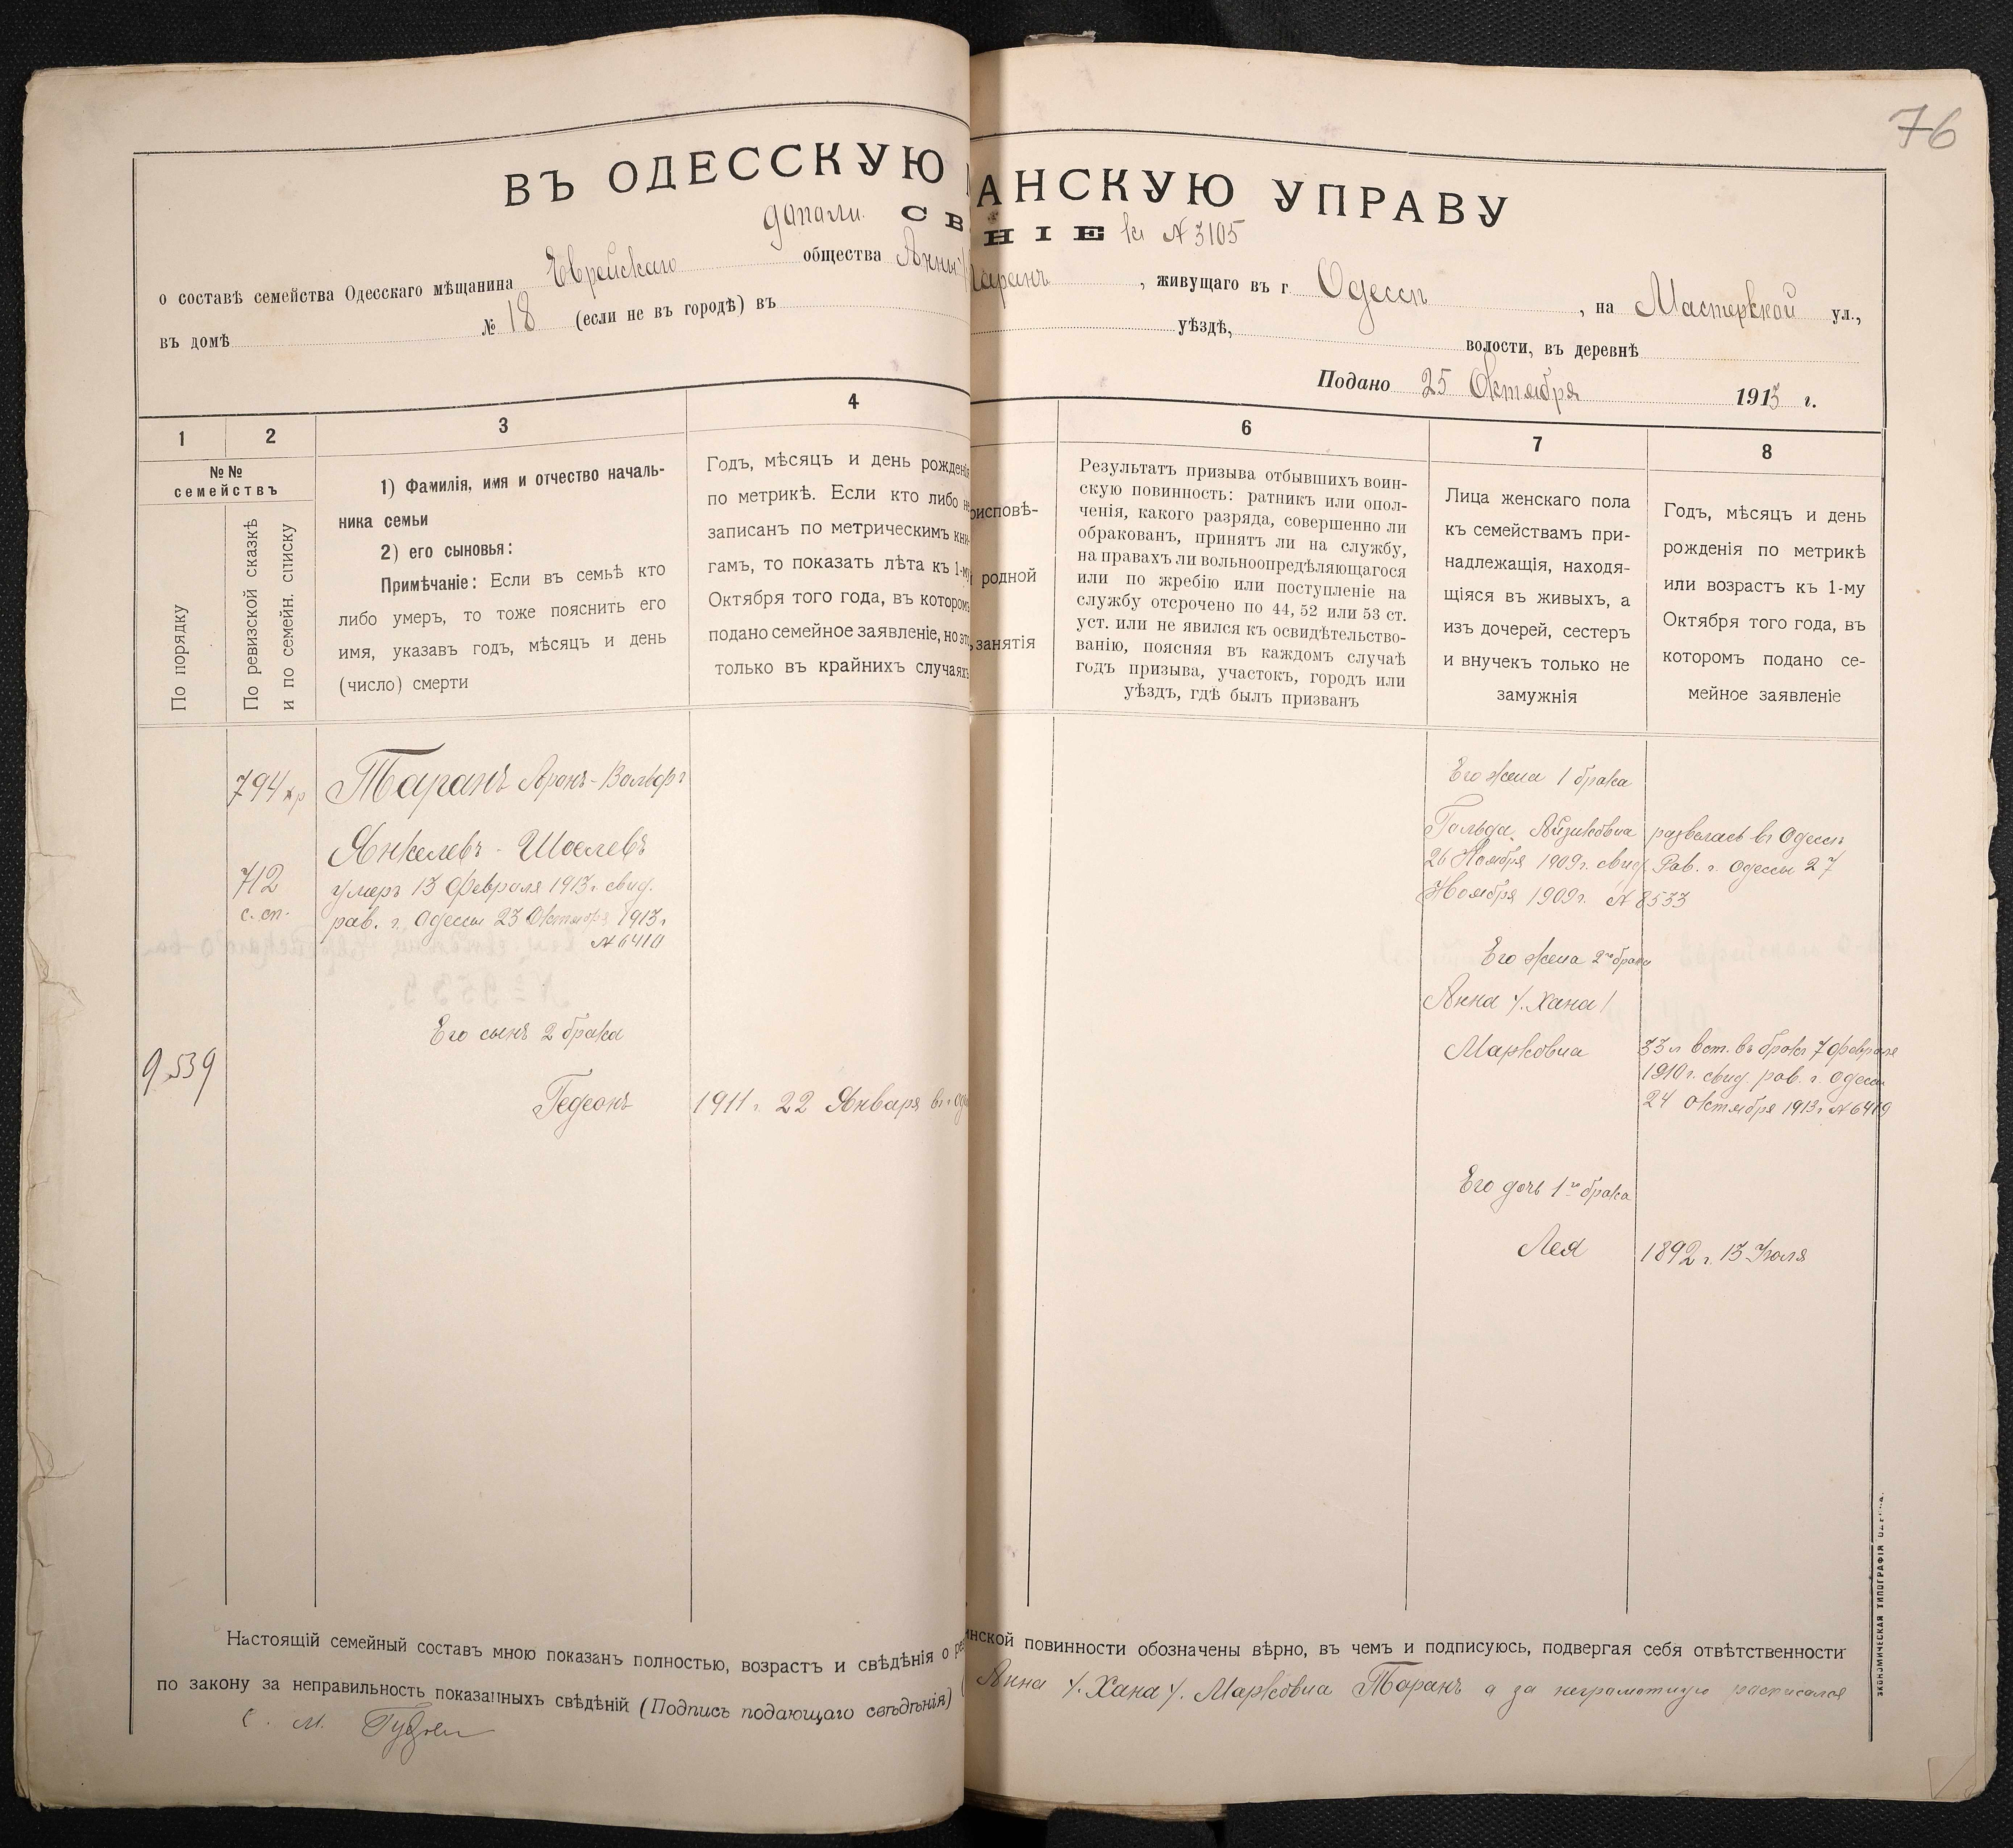 76
ВЪ ОДЕССКУЮ
АНСКУЮ УПРАВУ
СВ
НІЕ къ № 3105
о составѣ семейства Одесскаго мѣщанина Еврейскаго общества Анны
Таранъ, живущаго въ г Одессѣ, на Мастерской ул.,
въ домѣ № 18 (если не въ городѣ) въ
уѣздѣ, волости, въ деревнѣ
Подано 25 Октября 1913 г.
1
2
3
4
6
7
8
№№
семействъ
По порядку
По ревизской сказкѣ
и по семейн. списку
1) Фамилія, имя и отчество началь-
ника семьи
2) его сыновья:
Примѣчаніе: Если въ семьѣ кто
либо умеръ, то тоже пояснить его
имя, указавъ годъ, мѣсяцъ и день
(число) смерти
Годъ, мѣсяцъ и день рожденія
по метрикѣ. Если кто либо не
записанъ по метрическимъ кни-
гамъ, то показать лѣта къ 1-му
Октября того года, въ которомъ
подано семейное заявленіе, но это
только въ крайнихъ случаяхъ
рисповѣ-
родной
занятія
Результатъ призыва отбывшихъ воин-
скую повинность: ратникъ или опол-
ченія, какого разряда, совершенно ли
обракованъ, принятъ ли на службу,
на правахъ ли вольноопредѣляющагося
или по жребію или поступленіе на
службу отсрочено по 44, 52 или 53 ст.
уст. или не явился къ освидѣтельство-
ванію, поясняя въ каждомъ случаѣ
годъ призыва, участокъ, городъ или
уѣздъ, гдѣ былъ призванъ
Лица женскаго пола
къ семействамъ при-
надлежащія, находя-
щіяся въ живыхъ, а
изъ дочерей, сестеръ
и внучекъ только не
замужнія
Годъ, мѣсяцъ и день
рожденія по метрикѣ
или возрастъ къ 1-му
Октября того года, въ
которомъ подано се-
мейное заявленіе
794 хр
Таранъ Аронъ-Вольфъ
Янкелевъ-Шоелевъ
712
с. сп.
умеръ 13 Февраля 1913 г. свид.
рав. г. Одессы 23 Октября 1913 г
№ 6410
Его сынъ 2 брака
9539
Гедеонъ
1911 г. 22 Января въ г Оде
Его жена 1 брака
Гольда Айзиковна развелась въ Одессѣ
26 Ноября 1909 г. свид. Рав. г. Одессы 27
Ноября 1909 г. № 8533
Его жена 2го брака
Анна /. Хана /
Марковна
33 л вст. въ бракъ 7 Февраля
1910 г. свид. рав. г. Одессы
24 Октября 1913 г № 6419
Его дочь 1го брака
Лея
1892 г. 13 Іюля
Настоящій семейный составъ мною показанъ полностью, возрастъ и свѣдѣнія о ре
инской повинности обозначены вѣрно, въ чемъ и подписуюсь, подвергая себя отвѣтственности
по закону за неправильность показанныхъ свѣдѣній (Подпись подающаго свѣдѣнія)
Анна /. Хана /. Марковна Таранъ а за неграмотную расписался
С. М.
ЭКОНОМИЧЕСКАЯ ТИПОГРАФІЯ